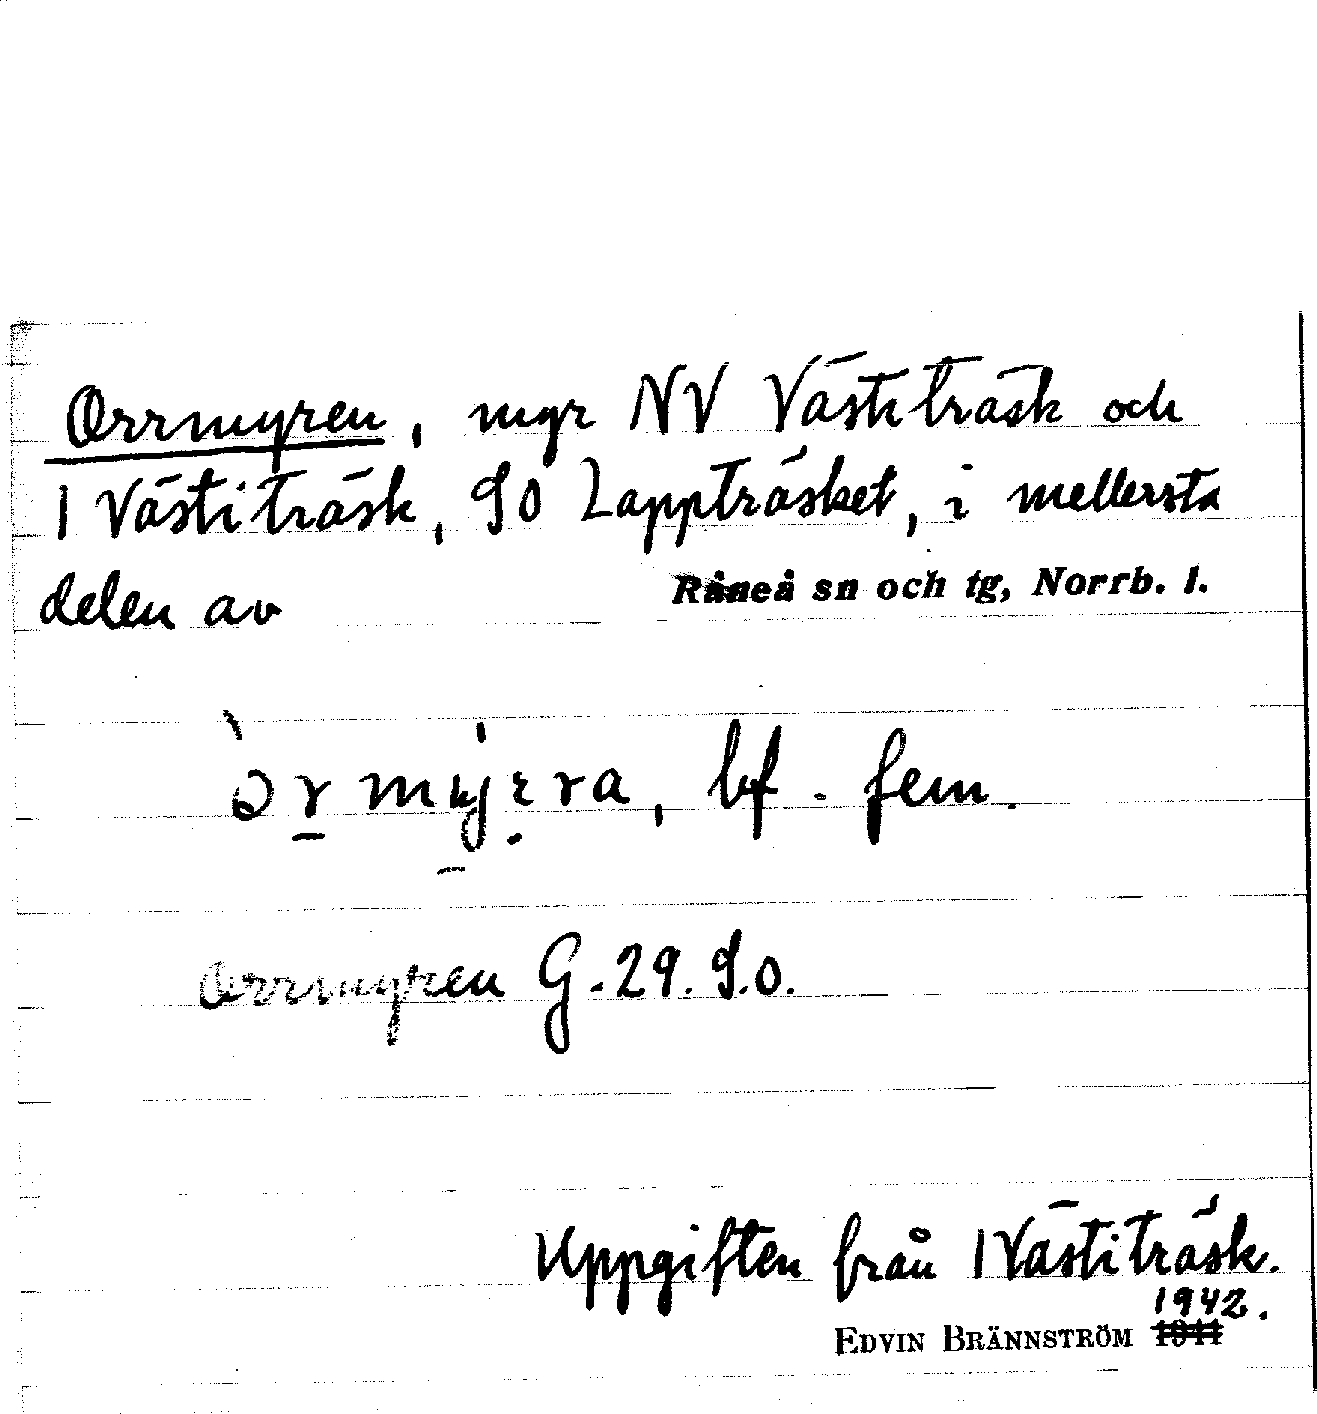 Orrmyren, myr NV Västiträsk och
1 Västiträsk, SO Lappträsket, i mellersta
delen av Råneå sn och tg, Norrb. l.
bf. fem.
Orrmyren G. 29. S.o.
Uppgiften från 1 Västiträsk.
1942.
EDVIN BRÄNNSTRÖM 1941